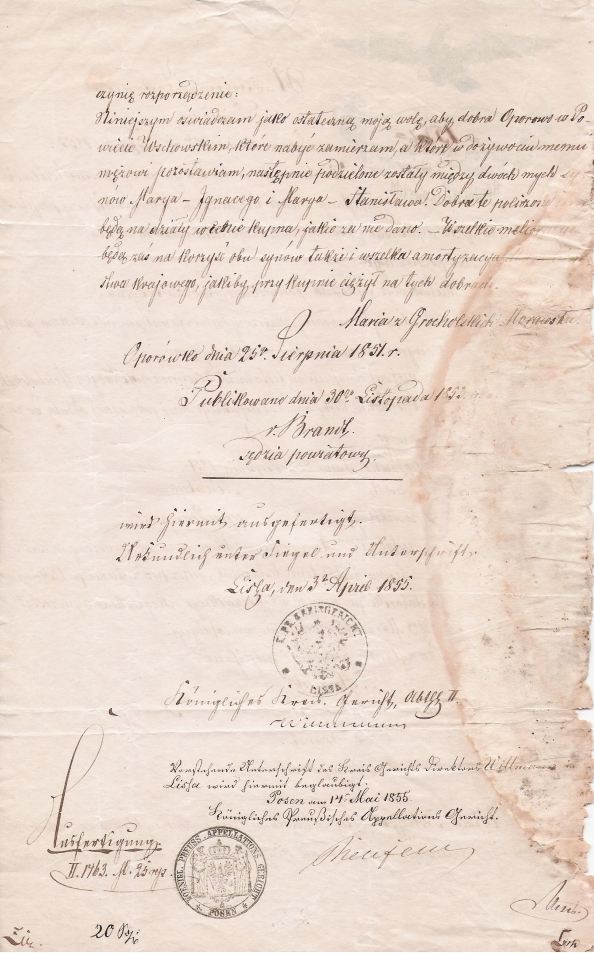 czynię rozporządzenie:
Niniejszym oświadczam jako ostateczną moją wolę, aby dobra Oporowo w Po-
wiecie Wschowskim, które nabyć zamierzam, a które w dożywociu memu
mężowi pozostawiam, następnie podzielone zostały między dwóch mych sy-
nów Marya - Ignacego i Marya - Stanisława. Dobra te policzone
będą na działy w cenie kupna, jakie za nie dano. - Wszelkie
będą zaś na korzyść obu synów także i wszelka amortyzacya
stwa krajowego, jakieby przy kupnie ciężył na tych dobrach.
Maria z Grocholskich
Oporówko dnia 25go Sierpnia 1851. r.
Publikowano dnia 30go Listopada
v. Brandt.
sędzia powiatowy.
wird hiermit ausgefertigt.
Urkundlich unter Siegel und Unterschrift.
Lissa, den 3t April 1855.
K. PR. KREISGERICHT
LISSA
Königliches Kreis-Gericht, Abthl II
Vorstehende Unterschrift des Kreis Gerichts Direktors
Lissa wird hiermit beglaubigt.
Posen am 14t Mai 1855
Königliches Preußisches Appellations Gericht.
Ausfertigung
II. 1763.
KOENIGL. PREUSS. APPELLATIONS GERICHT
POSEN
20